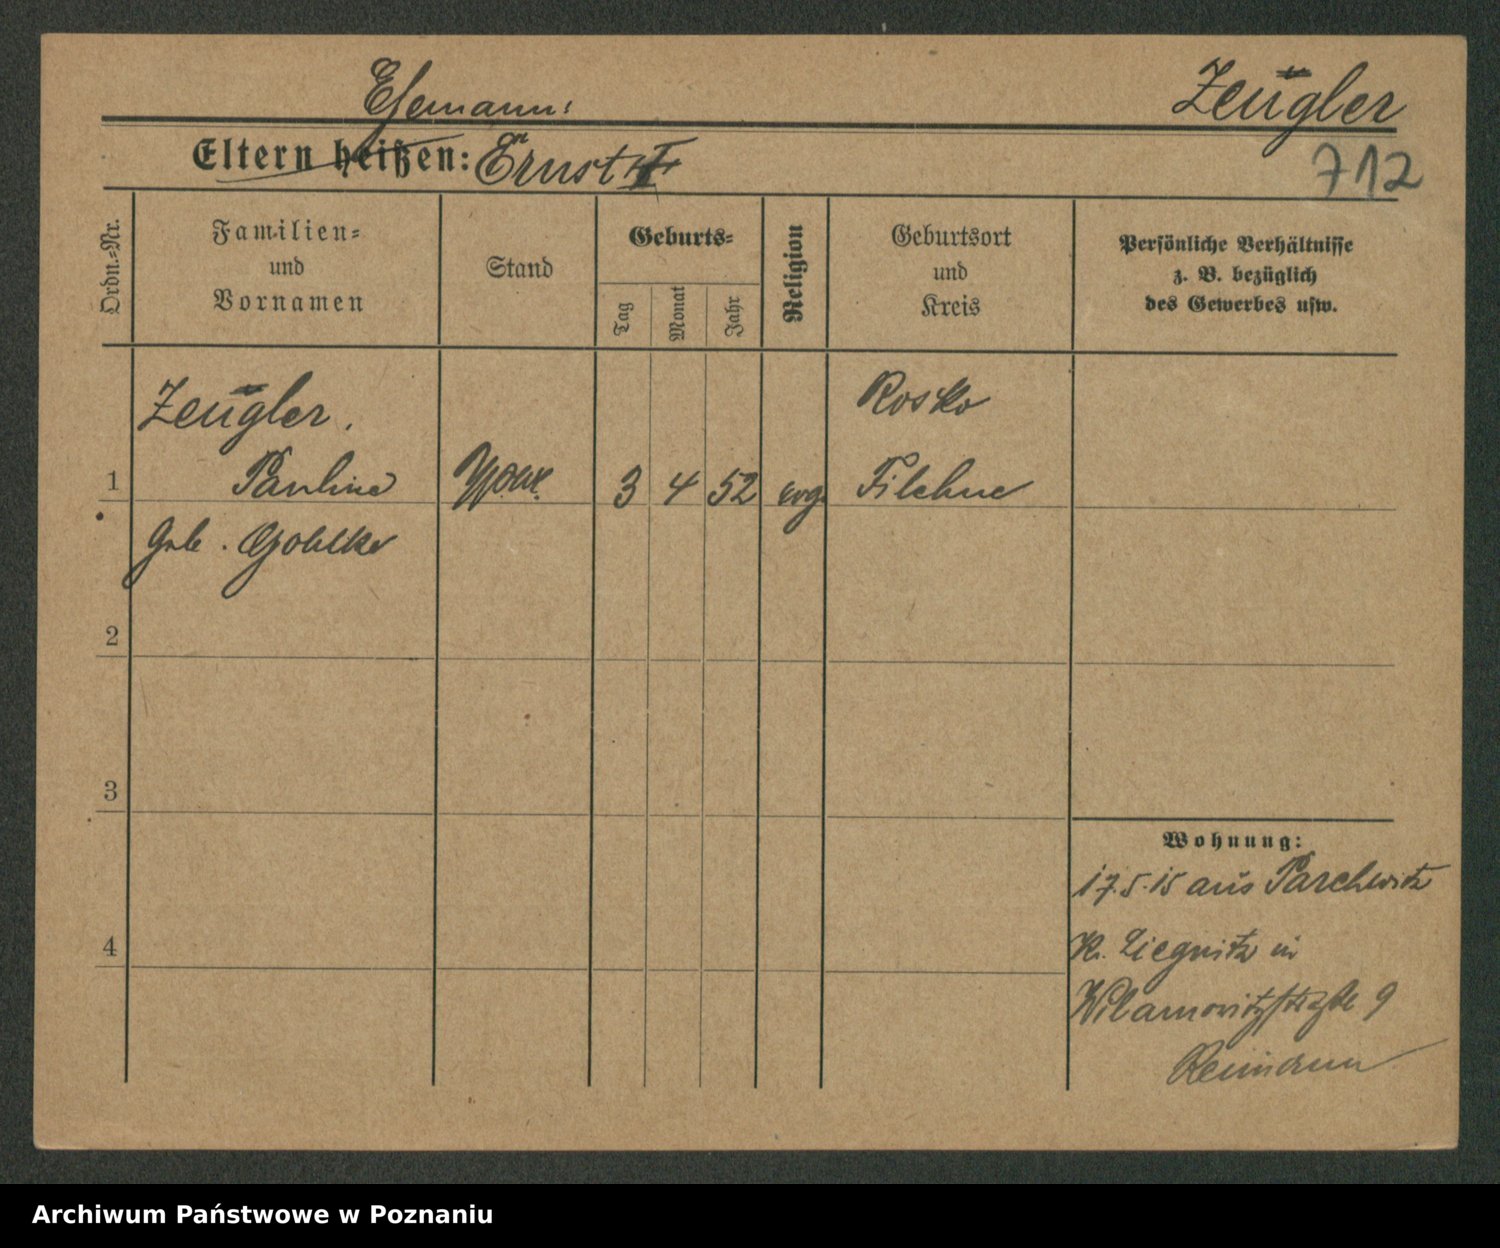 Ehemann:
Zeugler
Eltern heißen: Ernst †
712
Ordn.-Nr.
Familien-
und
Vornamen
Stand
Geburts-
Tag
Monat
Jahr
Religion
Geburtsort
und
Kreis
Persönliche Verhältnisse
z. B. bezüglich
des Gewerbes usw.
Zeugler,
Rosko
1 Pauline 3 4 52 evg. Filehne
geb. Gohlke
2
3
Wohnung:
17.5.15 aus Parchwitz
4
Kr. Liegnitz in
Wilamowitzstraße 9
Reimann
Archiwum Państwowe w Poznaniu